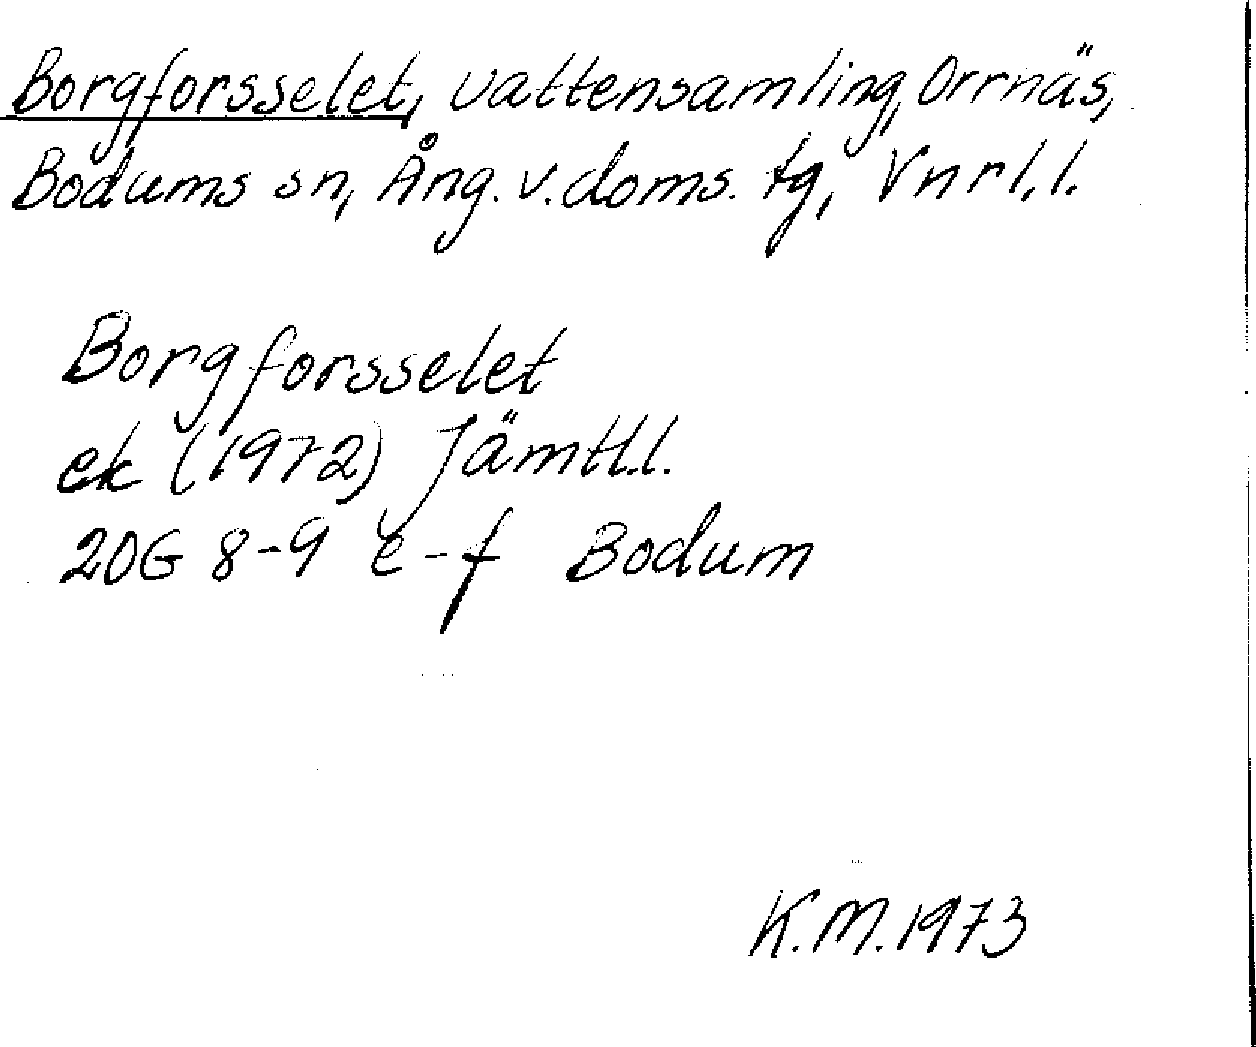 Borgforsselet, vattensamling, Orrnäs,
Bodums sn, Ång. v. doms. tg, Vnrl. l.
Borgforsselet
ek (1972) Jämtl.l.
20G 8-9 e-f Bodum
K.M. 1973